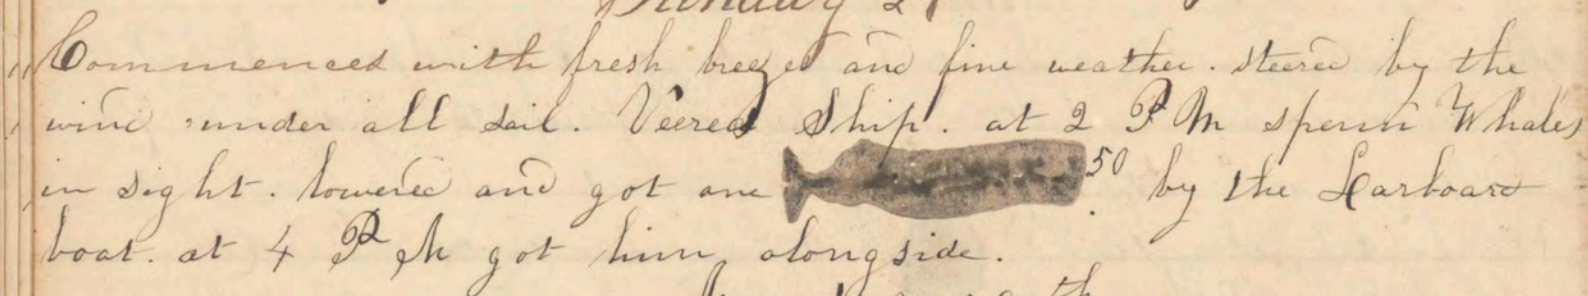 Sunday 2
Commenced with fresh breezes and fine weather. steered by the
wind under all sail. Veered Ship. at 2 P M sperm Whales
in sight. lowered and got one 50 by the Larboard
boat. at 4 P M got him alongside.